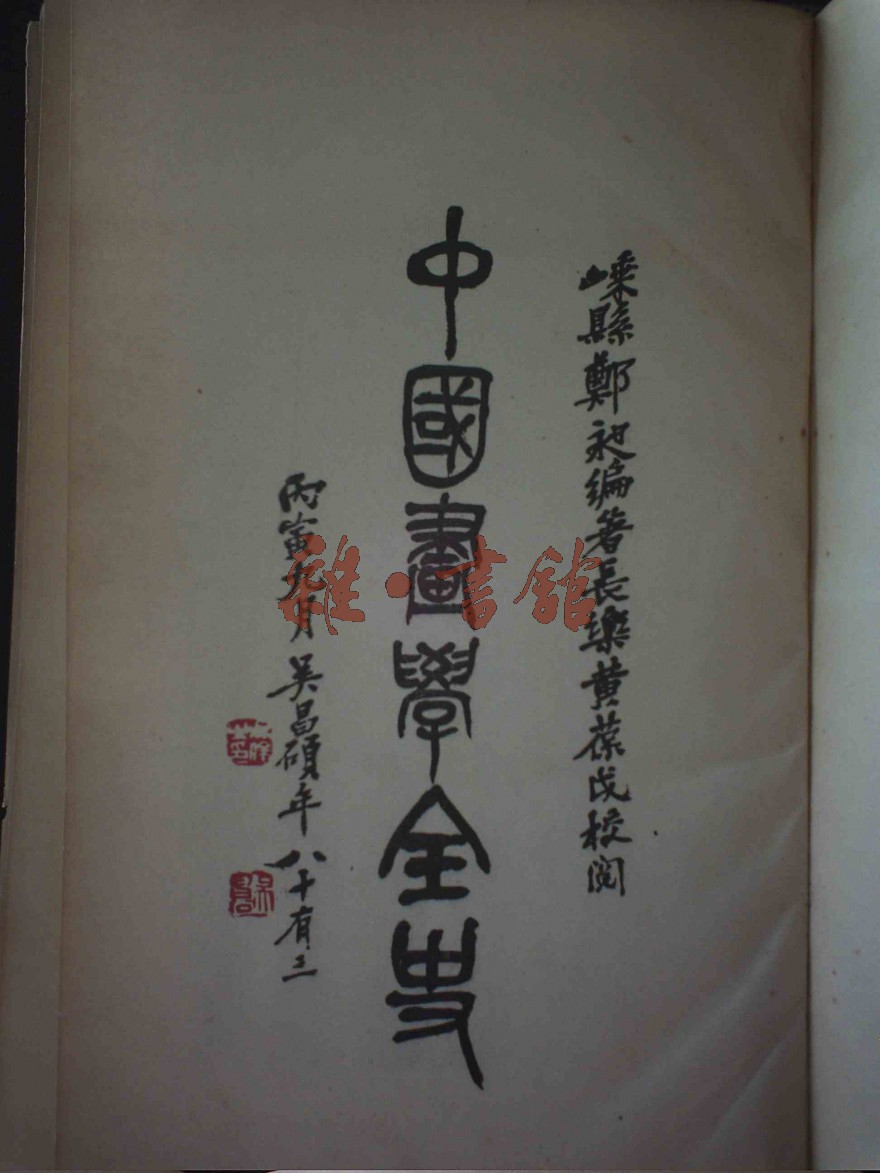 嵊縣鄭昶編著長樂黃葆戉校閱
中國畫學全史
丙寅九月吳昌碩年八十有三
雜·書館